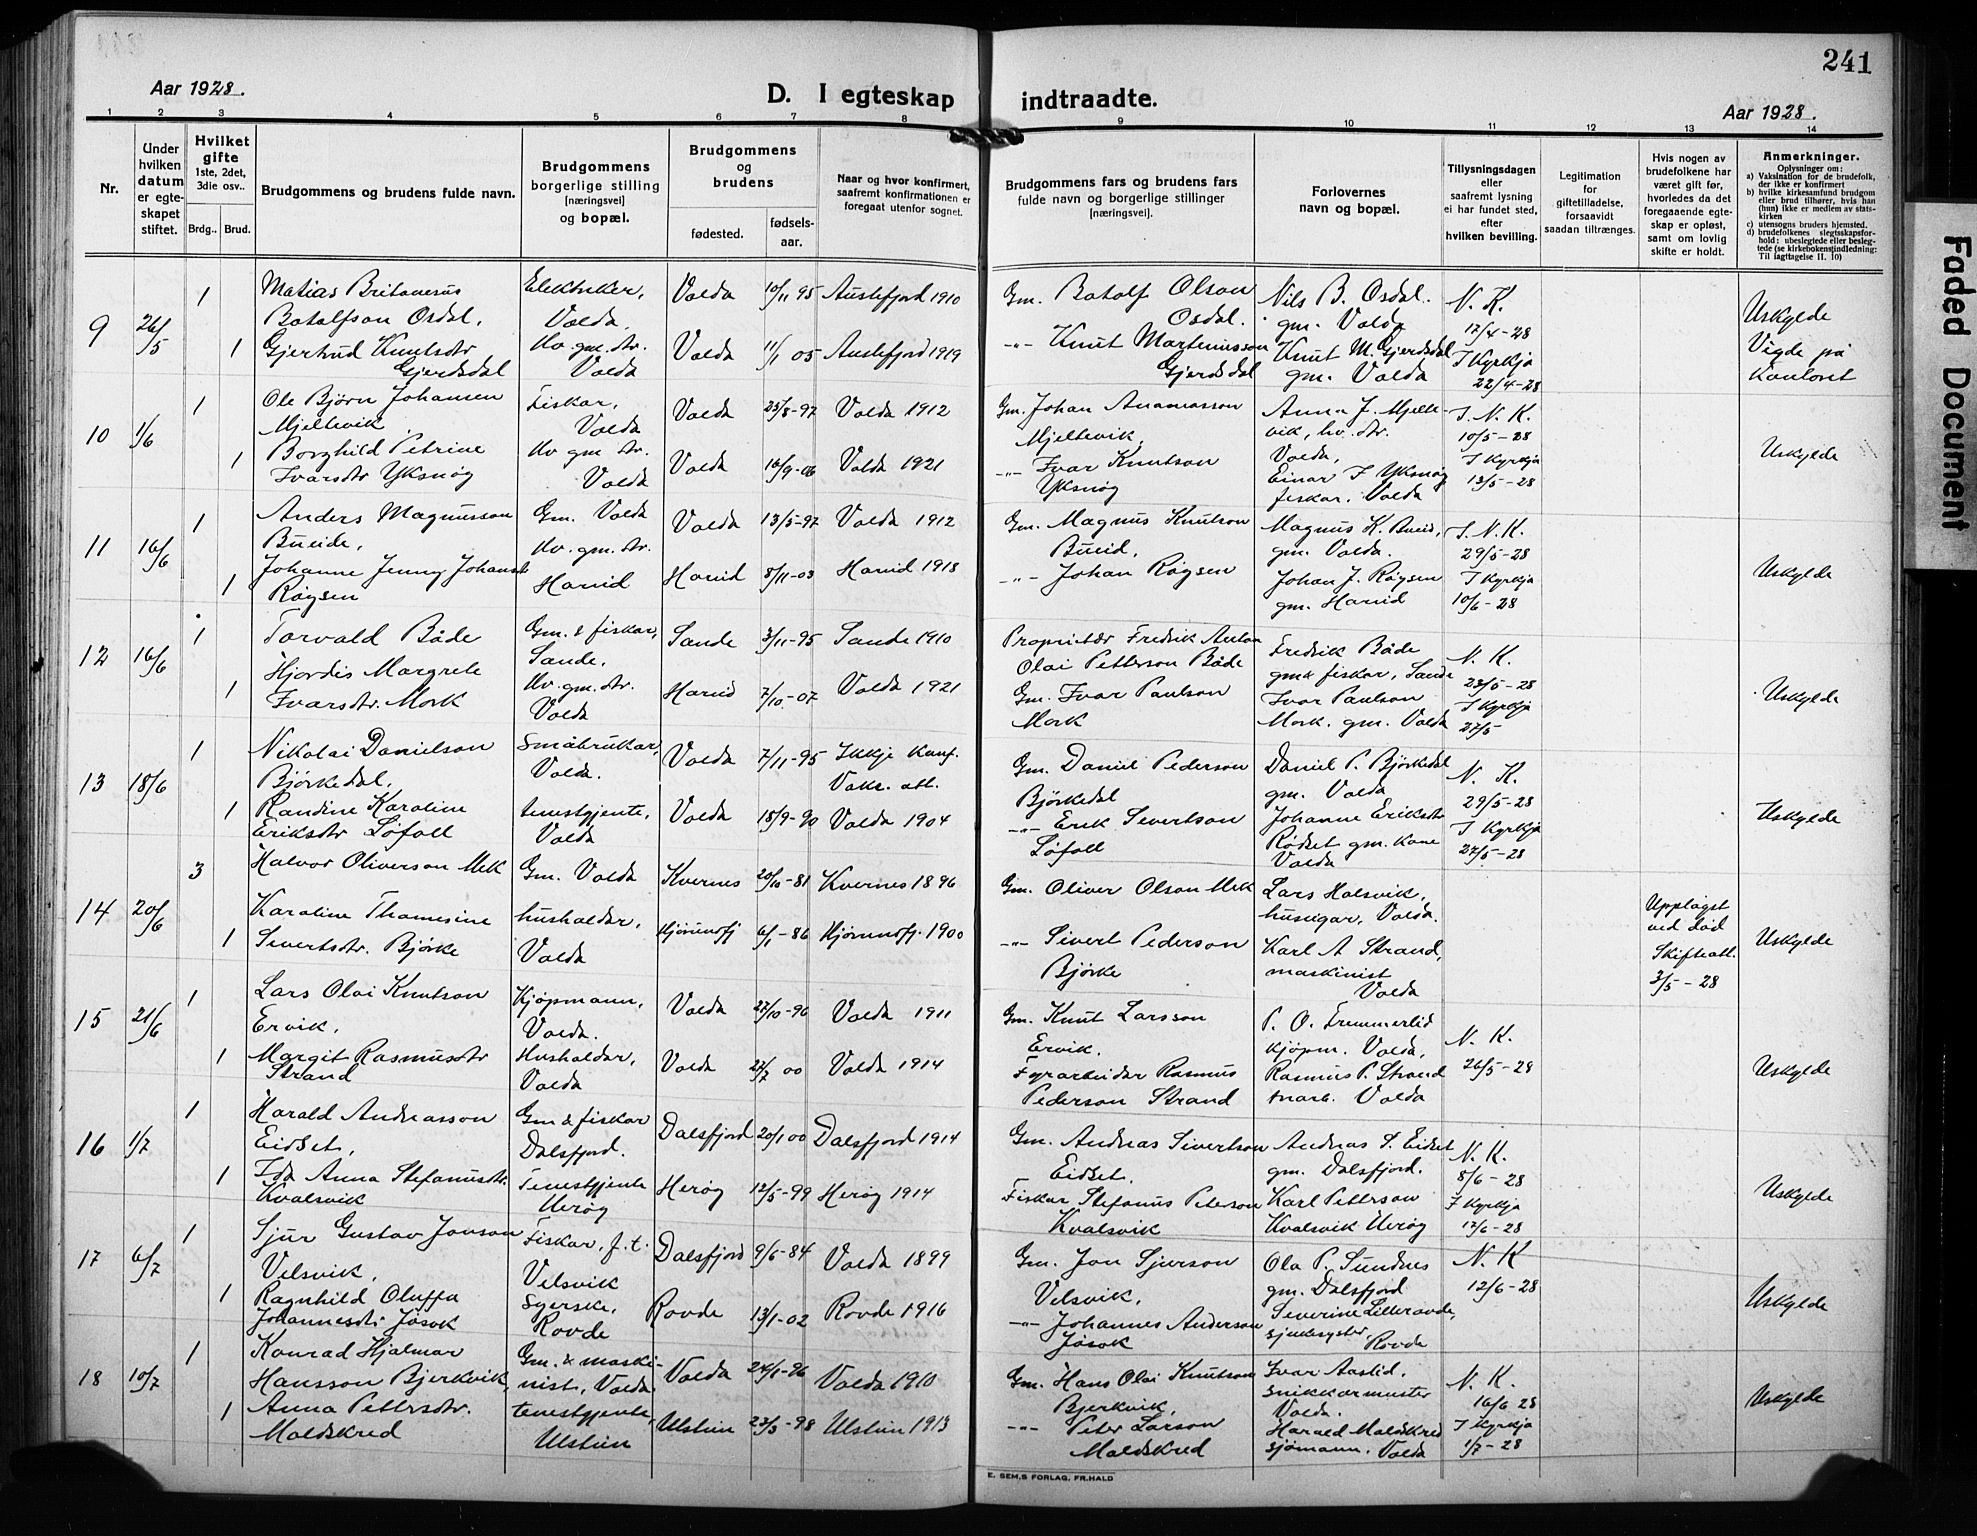 241
Aar 1928.
D. I egteskap indtraadte.
Aar 1928.
1 2 3 4 5 6 7 8 9 10 11 12 13 14
Nr.
Under hvilken datum er egteskapet stiftet.
Hvilket gifte 1ste, 2det, 3die osv..
Brdg.. Brud.
Brudgommens og brudens fulde navn.
Brudgommens borgerlige stilling [næringsvei] og bopæl.
Brudgommens og brudens
fødested.
fødselsaar.
Naar og hvor konfirmert, saafremt konfirmationen er foregaat utenfor sognet.
Brudgommens fars og brudens fars fulde navn og borgerlige stillinger [næringsvei].
Forlovernes navn og bopæl.
Tillysningsdagen eller saafremt lysning ei har fundet sted, efter hvilken bevilling.
Legitimation for giftetilladelse, forsaavidt saadan tiltrænges.
Hvis nogen av brudefolkene har været gift før, hvorledes da det foregaaende egteskap er opløst, samt om lovlig skifte er holdt.
Anmerkninger.
Oplysninger om:
a) Vaksination for de brudefolk, der ikke er konfirmert
b) hvilke kirkesamfund brudgom eller brud tilhører, hvis han (hun) ikke er medlem av statskirken
c) utensogns bruders hjemsted.
d) brudefolkenes slegtsskapsforhold: ubeslegtede eller beslegtede (se kirkebokens indledning: Til iagttagelse II. 10)
9 26/5 1 Matias Britanerus Botolfson Osdal, Elektriker, Volda. Volda 10/11 95 Austefjord 1910 Gm. Botolf Olson Osdal. Nils B. Osdal. gm. Volda N. K. 17/4-28 Uskylde
1 Gjertrud Knutsdtr Gjerdsdal Hv. gm. dtr. Volda Volda 11/1 05 Austefjord 1919 -"- Knut Martinusson Gjerdsdal Knut M. Gjerdsdal gm. Volda I Kyrkja 22/4-28 Vigde på Kontoret
10 1/6 1 Ole Bjørn Johansen Mjeltevik Fiskar, Volda Volda 25/8-97 Volda 1912 Gm. Johan Ananiasson Mjeltevik. Anna J. Mjeltevik, hv. dtr. Volda, I. N. K. 10/5-28 Uskylde
1 Borghild Petrine Ivarsdtr Yksnøy Hv gm dtr. Volda Volda 16/9-06 Volda 1921 -"- Ivar Knutson Yksnøy Einar I Yksnøy fiskar. Volda I Kyrkja 13/5-28
11 16/6 1 Anders Magnusson Bueide, Gm. Volda Volda 13/5-97 Volda 1912 Gm. Magnus Knutson Bueid, Magnus K. Bueid, gm. Volda. I. N. K. 29/5-28 Uskylde
1 Johanne Jenny Johansdt Røysen Hv. gm. dtr. Hareid Hareid 8/11-03 Hareid 1918 -"- Johan Røysen Johan J. Røysen gm. Hareid I Kyrkja 10/6-28
12 16/6 1 Torvald Både Gm. & fiskar, Sande. Sande 3/11-95 Sande 1910 Proprietær Fredrik Anton Olai Petterson Både Fredrik Både gm & fiskar, Sande N. K. 23/5-28 Uskylde
1 Hjordis Margrete Ivarsdtr. Mork Hv. gm. dtr. Volda Hareid 7/10-07 Volda 1921 Gm. Ivar Paulson Mork Ivar Paulson Mork. gm. Volda I Kyrkja 27/5
13 18/6 1 Nikolai Danielson Bjørkedal, Småbrukar, Volda. Volda 7/11-95 Ikkje konf. Vaks. att. Gm. Daniel Pederson Bjørkedal Daniel P. Bjørkedal gm. Volda N. K. 29/5-28 Uskylde
1 Randine Karoline Eriksdtr Løfoll tenestgjente, Volda Volda 15/9-90 Volda 1904 -"- Erik Sivertson Løfoll Johanne Eriksdtr Rødset gm. kone Volda I Kyrkja 27/5-28
14 20/6 3 Halvor Oliverson Mek Gm. Volda Kvernes 20/10-81 Kvernes 1896 Gm. Oliver Olson Mek Lars Halsvik, huseigar, Volda. Uppløyst ved død Uskylde
1 Karoline Thomesine Sivertsdtr. Bjørke husholdar, Volda Hjørundfj 6/1-86 Hjørundfj. 1900 -"- Sivert Pederson Bjørke Karl A Strand, maskinist Volda Skifteatt. 3/5-28
15 21/6 1 Lars Olai Knutson Ervik, Kjøpmann, Volda. Volda 27/10-96 Volda 1911 Gm. Knut Larsson Ervik. P. O. Fremmerlid kjøpm. Volda, N. K. 26/5-28 Uskylde
1 Margit Rasmusdtr Strand Husholdar, Volda Volda 27/7 00 Volda 1914 Fyrarbeidar Rasmus Pederson Strand Rasmus P. Strand snarb. Volda
16 1/7 1 Harald Andreasson Eidset, Gm & fiskar Dalsfjord. Dalsfjord 20/1 00 Dalsfjord 1914 Gm. Andreas Sivertson Eidset. Andreas S. Eidset gm. Dalsfjord. N. K. 8/6-28 Uskylde
1 Ida Anna Stefanusdtr. Kvalsvik Tenestgjente Herøy Herøy 12/5-99 Herøy 1914 Fiskar Stefanus Peterson Kvalsvik Karl Petterson Kvalsvik Herøy I Kyrkja 17/6-28
17 6/7 1 Sjur Gustav Jonson Velsvik, Fiskar, f. t. Velsvik Dalsfjord 9/6-84 Volda 1899 Gm. Jon Sjurson Velsvik, Ola P. Sundnes gm. Dalsfjord N. K 12/6-28 Uskylde
1 Ragnhild Oluffa Johannesdtr Jøsok Syerske, Rovde Rovde 13/1-02 Rovde 1916 -"- Johannes Anderson Jøsok Severine Lillerovde, sjukesyster, Rovde
18 10/7 1 Konrad Hjalmar Hansson Bjerkvik, Gm. & maskinist, Volda. Volda 24/1-96 Volda 1910 Gm. Hans Olai Knutson Bjerkvik, Ivar Aaslid, snikkarmester Volda. N. K. 16/6 28 Uskylde
1 Anna Pettersdtr. Moldskred tenestgjente, Ulstein Ulstein 23/3-98 Ulstein 1913 -"- Peter Larson Moldskred Harald Moldskred sjømann. Volda I Kyrkja 1/7-28
E. SEM,S FORLAG, FR.HALD
Faded Document